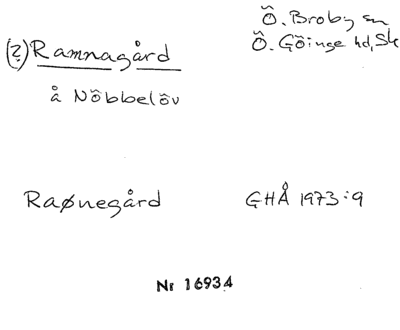 Ö. Broby sn
(?) Ramnagård Ö. Göinge hd, Sk
å Nöbbelöv
Raønegård GHÅ 1973:9
Nr 16934